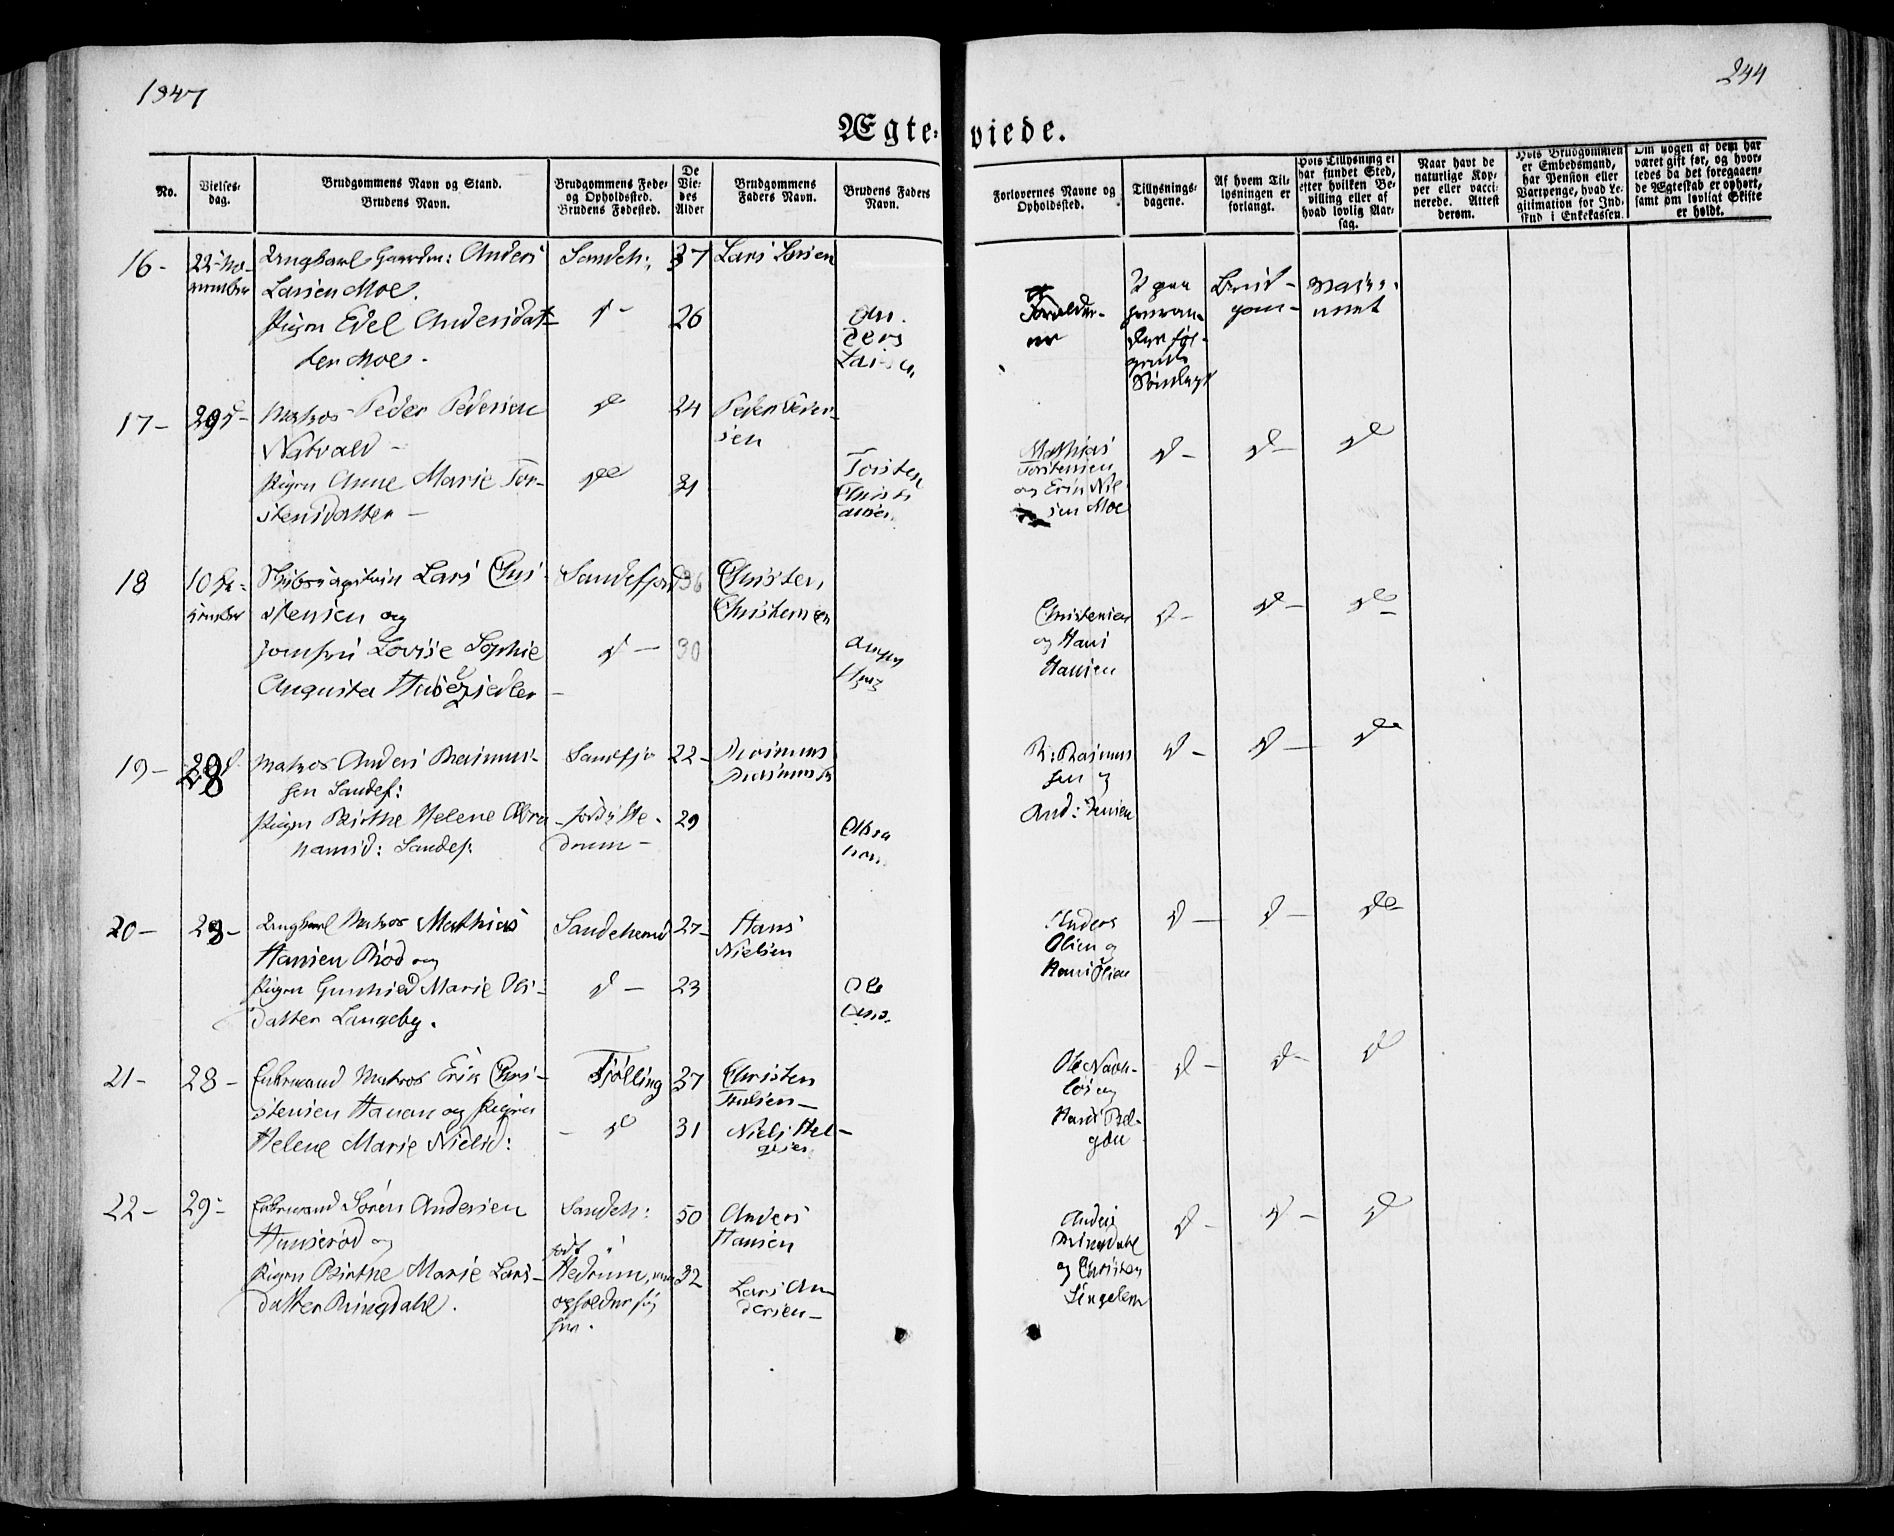 1847
244
Ægte-
viede.
No.
Vielses-
dag.
Brudgommens Navn og Stand.
Brudens Navn.
Brudgommens Føde-
og Opholdssted.
Brudens Fødested.
De
Vie-
des
Alder
Brudgommens
Faders Navn.
Brudens Faders
Navn.
Forlovernes Navne og
Opholdssted.
Tillysnings-
dagene.
Af hvem Til-
lysningen er
forlangt.
Hvis Tillysning ei
har fundet Sted,
efter hvilken Be-
villing eller af
hvad lovlig Aar-
sag.
Naar havt de
naturlige Kop-
per eller vacci-
nerede. Attest
derom.
Hvis Brudgommen
er Embedsmand,
har Pension eller
Vartpenge, hvad Le-
gitimation for Ind-
skud i Enkekassen.
Om nogen af dem har
været gift før, og hvor-
ledes da det foregaaen-
de Ægteskab er ophørt,
samt om lovligt Skifte
er holdt.
16-
22- No-
vember
Ungkarl Gaardm: Anders
Larsen Moe.
Pigen Edel Andersdat-
ter Moe.
Sandeh:
d-
37
26
Lars Larsen
An-
ders
Larsen
Forældre-
ne
Brud-
gom-
17-
29 d-
Matros Peder Pedersen
Natvald-
Pigen Anne Marie Tor-
stensdatter-
do
do
24
21
Peder Peder-
sen
Torsten
Christi
ansen
Mathias
Torstensen
og Erik Niel
sen Moe
d-
d-
d
18
10 De-
cember
Skibscapitain Lars Chri-
stensen og
Jomfru Lovise Sophie
Augusta
Sandefjord
d-
36
30
Christen
Christensen
Christensen
og Hans
Hansen
d-
d-
d-
19-
28
Matros Anders Rasmus-
sen Sandef:
Pigen Birthe Helene Abra
hamsd: Sandef:
Sandefjo
født i He-
drum-
22-
29
Rasmus
Rasmussen
Abra
ham
R: Rasmus
sen og
And: Jensen
d-
d-
do
20-
28-
Ungkarl Matros Mathias
Hansen Rød og
Pigen Gunhild Marie Ols-
datter Langeby.
Sandeherred
d-
27-
23
Hans
Nielsen
Ole
Anders
Olsen og
Hans Olsen
d-
d-
do
21-
28-
Enkemand Matros Erik Chri-
stensen Havan og Pigen
Helene Marie Nielsd:
Tjølling
- d
37
31
Christen
Niels Hel-
gesen
Hans
d-
d-
d
22-
29-
Enkemand Søren Andersen
Hunserød og
Pigen Birthe Marie Lars-
datter Ringdahl.
Sandeh:
født i
Hedrum, men
opholder sig
her.
50
32
Anders
Hansen
Lars An-
dersen-
Anders
Ringdahl
og Christen
d-
d-
d